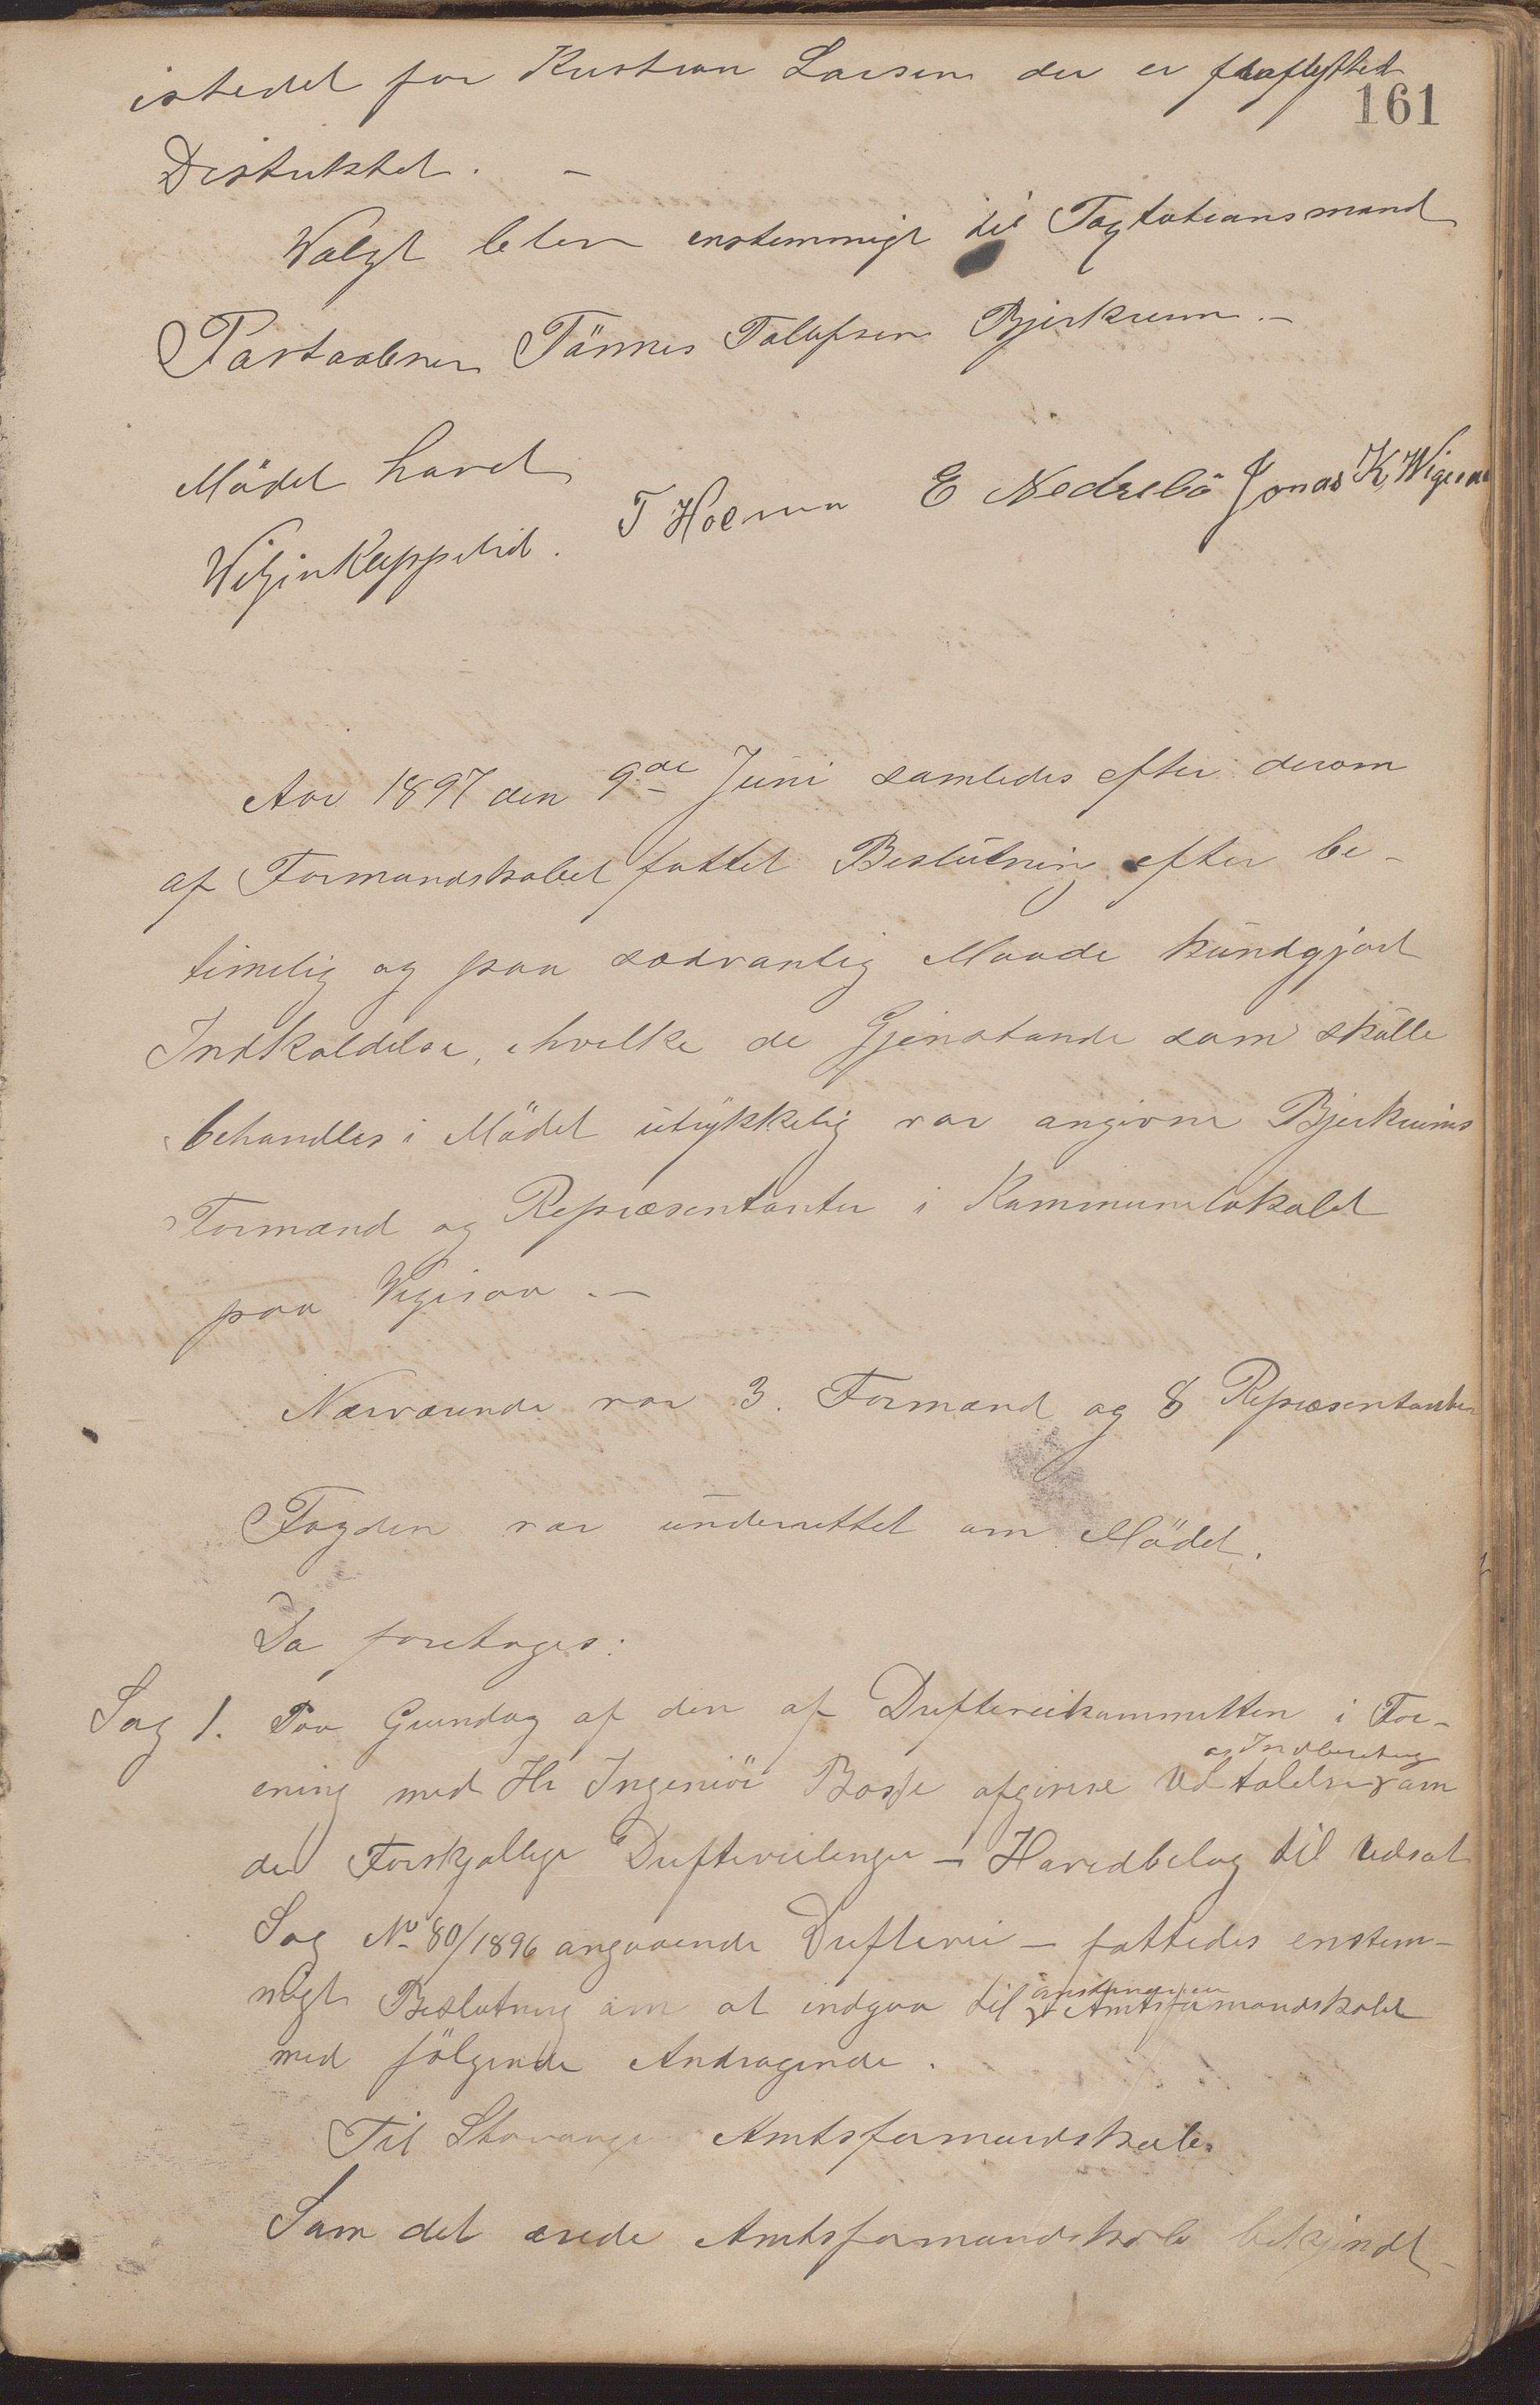 istedet for Kristian Larsen der er fraflyttet
161
Distriktet. –
Valgt blev enstemmigt til Taxtationsmand
Postaabner Tönnes Tolufsen Bjerkreim. –
Mödet hævet
T Hoem E Nedrebö Jonas K, Wigesaa
Aar 1897 den 9de Juni samledes efter derom
af Formandskabet fattet Beslutning efter be-
timelig og paa sædvanlig Maade kundgjort
Indkaldelse, i hvilke de Gjenstande som skulle
behandles i Mödet utrykkelig var angivne Bjerkreims
Formænd og Repræsentanter i Kommunelokalet
paa Vigesaa. –
Nærværende var 3. Formænd og 8 Repræsentanter
Fogden var underrettet om Mödet.
Da foretoges:
Sag 1. Paa Grundlag af den af Drifteveikommitteen i For-
og Indberetning
ening med Hr Ingeniör Bosse afgivne Udtalelser om
de Forskjellige Drifteveilenger – Hovedbilag til Udsat
Sag No 80/1896 angaaende Driftevei – fattedes enstem-
migt Beslutning om at indgaa til Amtsformandskabet
med fölgende Andragende.
Til Stavanger Amtsformandskab.
Som det ærede Amtsformandskab bekjendt –